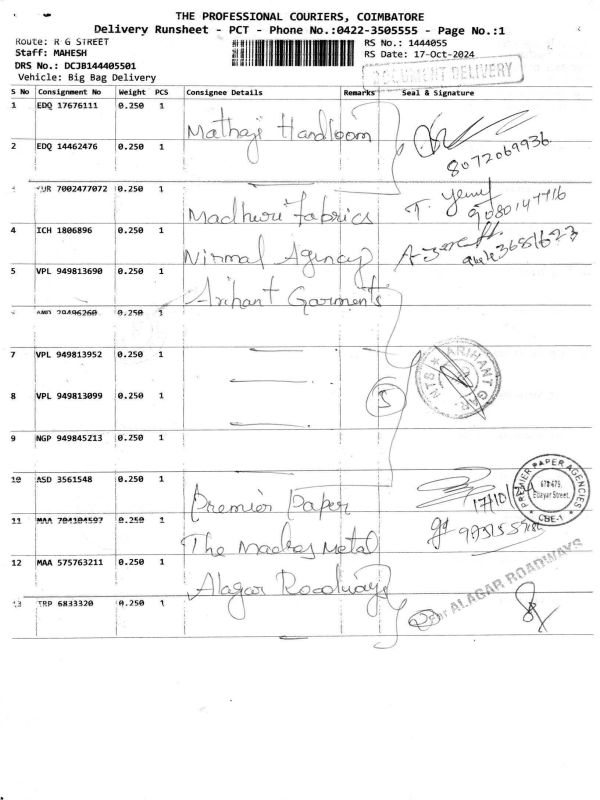 THE PROFESSIONAL COURIERS, COIMBATORE
Delivery Runsheet - PCT - Phone No.:0422-3505555 - Page No.:1
Route: R G STREET
RS No.: 1444055
Staff: MAHESH
RS Date: 17-Oct-2024
DRS No.: DCJB144405501
DOCUMENT DELIVERY
Vehicle: Big Bag Delivery
S No Consignment No Weight PCS Consignee Details Remarks Seal & Signature
1 EDQ 17676111 0.250 1
Mathaji Handloom
2 EDQ 14462476 0.250 1
8072069936
YUR 7002477072 0.250 1
Madhuri Fabrics
9080147716
4 ICH 1806896 0.250 1
Nirmal Agency
5 VPL 949813690 0.250 1
Arihant Garments
AMD 20496260 0.250 1
7 VPL 949813952 0.250 1
ARIHANT
8 VPL 949813099 0.250 1
5
9 NGP 949845213 0.250 1
10 ASD 3561548 0.250 1
Premier Paper
17/10/24
PREMIER PAPER AGENCIES
678-679,
Edayar Street,
CBE-1
11 MAA 704104597 0.250 1
The Madras Metal
12 MAA 575763211 0.250 1
Alagar Roadways
13 TRP 6833320 0.250 1
2
For ALAGAR ROADWAYS